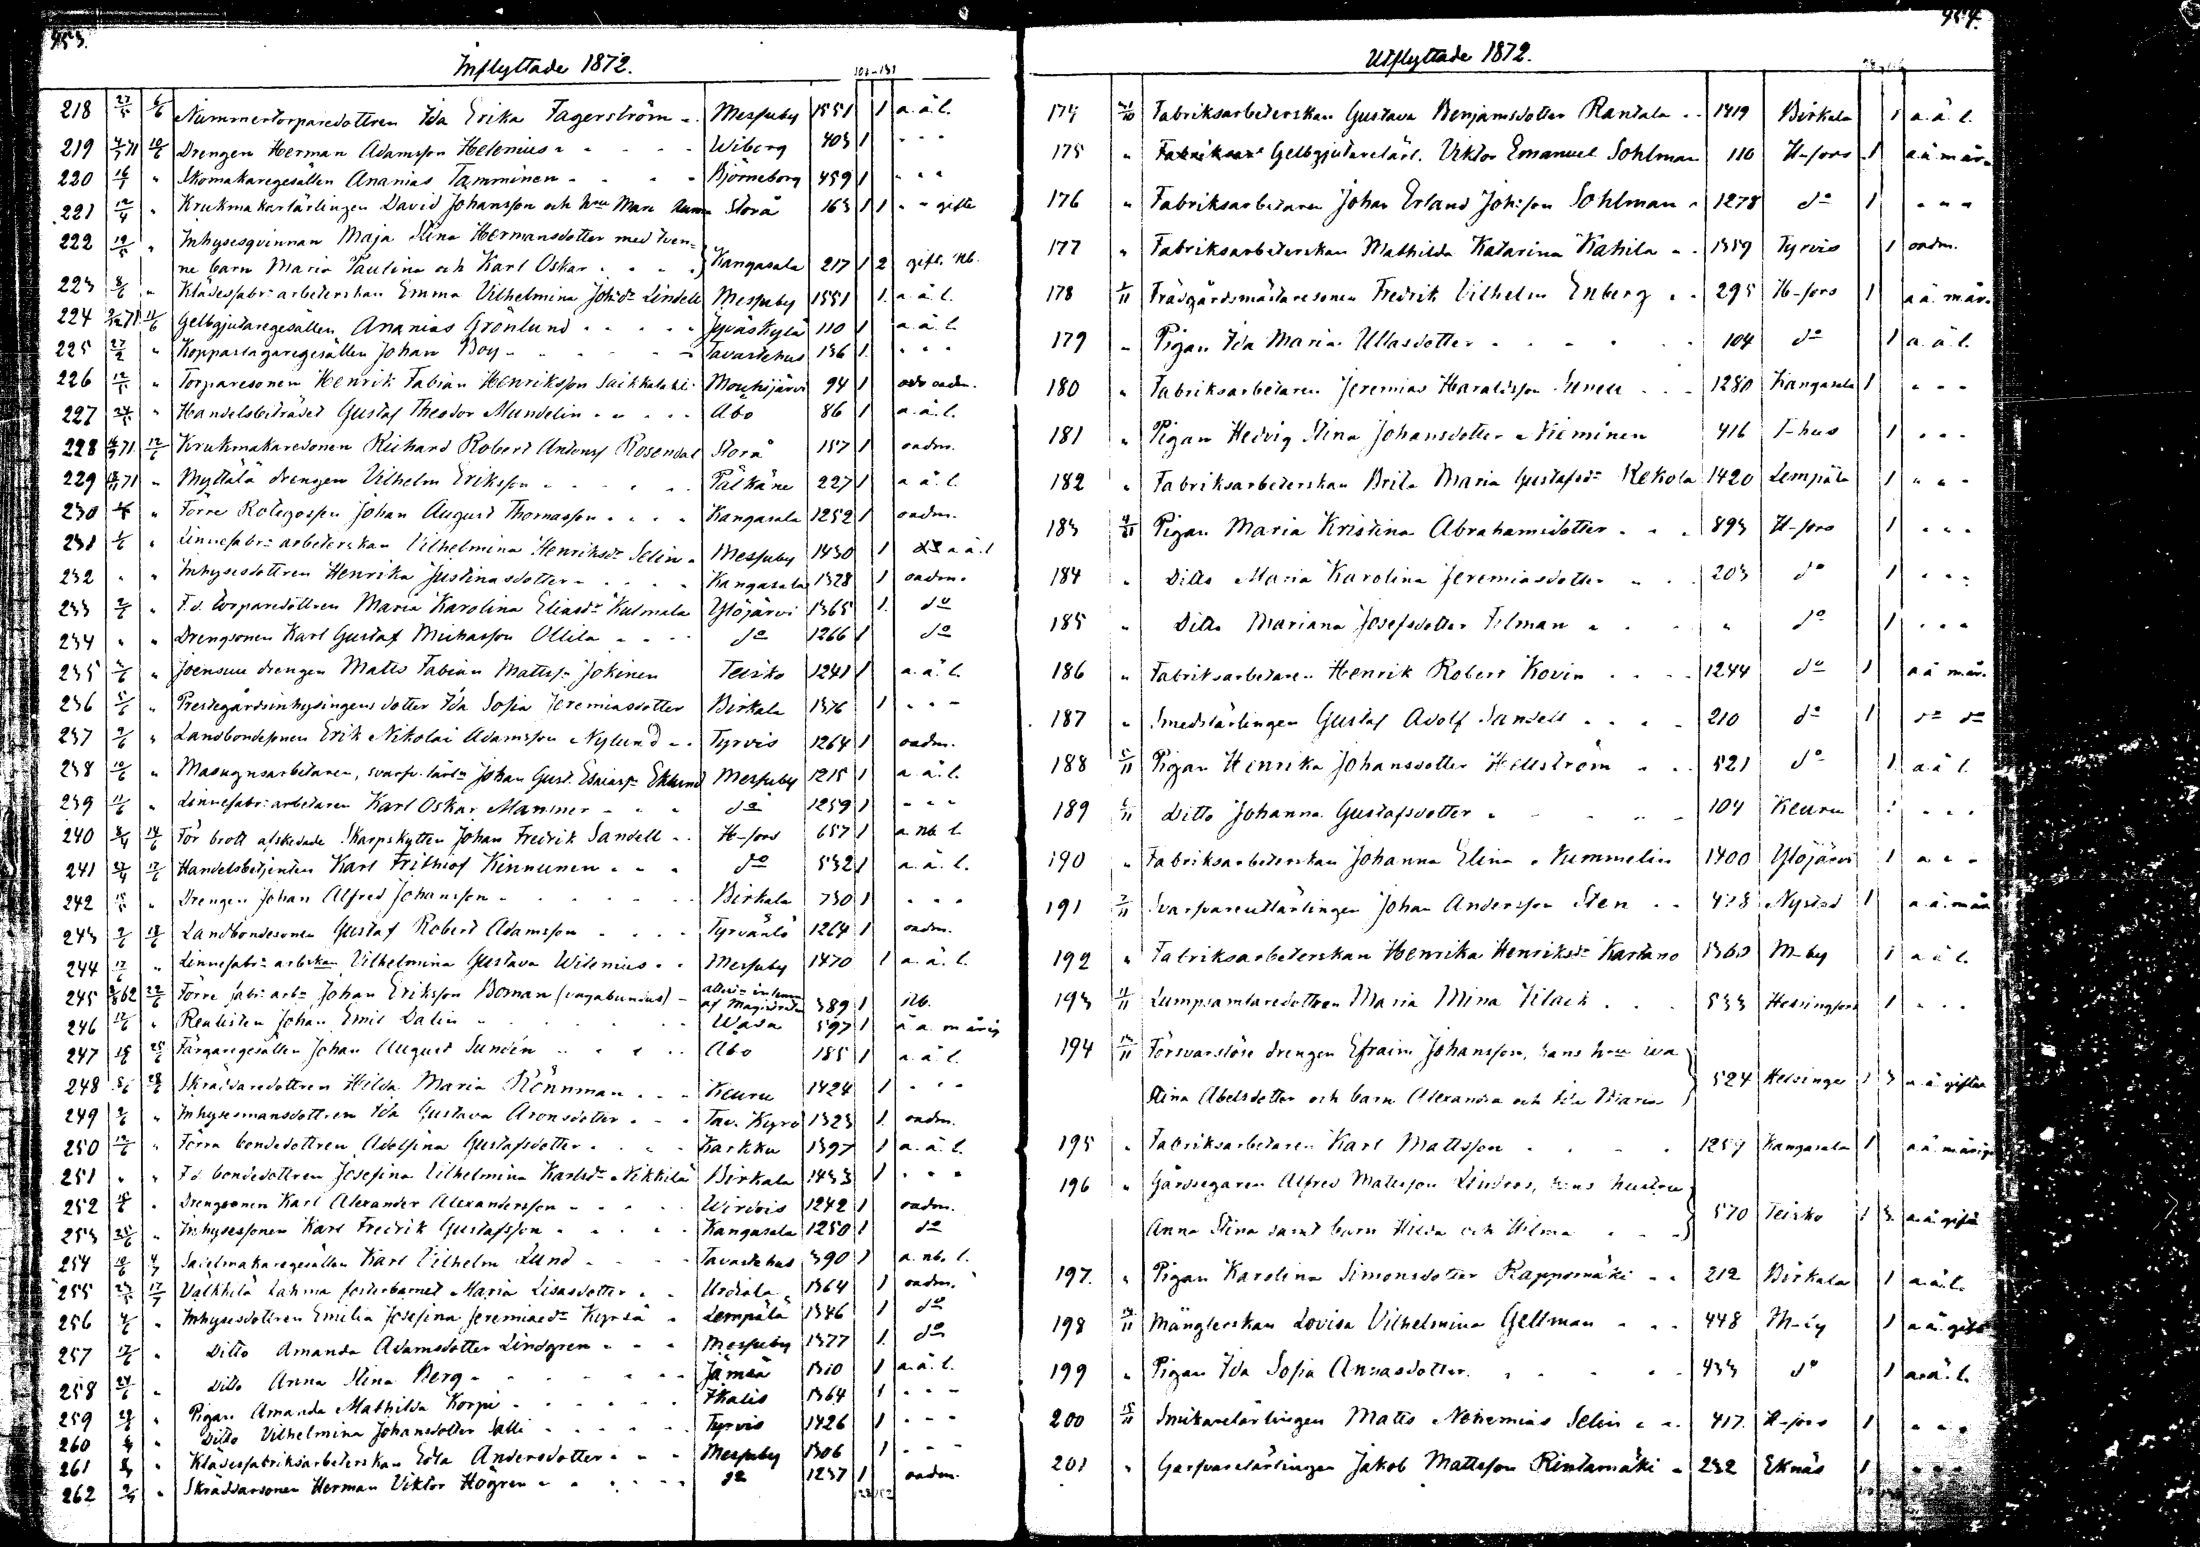 453.
Inflyttade 1872.
218 27/5 6/6 Nummertorparedottren Ida Erika Fagerström Messuby 1551 1 a.ä.l.
219 Drengen Herman Adamsson Helenius Wiborg 403 1 " " "
220 16/1 " Skomakaregesällen Ananias Tamminen Björneborg 459 1 " " "
221 12/4 " Krukmakarlärlingen David Johansson och hru Mari Storå 163 1 1 " " gifta
222 12/5 " Inhysesqvinnan Maja Stina Hermansdotter med tven-
ne barn Maria Paulina och Karl Oskar Kangasala 217 1 2 gift. nb.
223 3/6 " Klädesfabr: arbeterskan Emma Vilhelmina Joh:dr Lindell Messuby 1551 1. a.ä.l.
224 Gelbgjutaregesällen Ananias Grönlund Jyväskylä 110 1 a.ä.l.
225 27/2 " Kopparslagaregesällen Johan Boy Tavastehus 136 1. " " "
226 12/5 " Torparesonen Henrik Fabian Henriksson Mouhijärvi 94 1 oadm.
227 " Handelsbiträdet Gustaf Theodor Mundelin Åbo 86 1 a.ä.l.
228 12/6 Krukmakaresonen Richard Robert Antonsf Rosendal Storå 157 1 oadm.
229 " Myttälä drengen Vilhelm Eriksson Pälkäne 227 1 a ä.l.
230 " Förre Rotegossen Johan August Thomasson Kangasala 1252 1 oadm.
231 " Linnefabr: arbeterskan Vilhelmina Henriksdr Selin Messuby 1430 1 a ä.l
232 " " Inhysesdottren Henrika Justinasdotter Kangasala 1328 1 oadm.
233 2/6 " F.d. torparedottren Maria Karolina Eliasdr Kulmala Ylöjärvi 1365 1. do
234 " " Drengsonen Karl Gustaf Michasson Ollila do 1266 1 do
235 " Joensuu drengen Matts Fabian Mattss: Jokinen Teisko 1241 1 a.ä.l.
236 5/6 " Prestegårdsinhysingens dotter Ida Sofia Jeremiasdotter Birkala 1376 1 " " "
237 9/6 " Landbondesonen Erik Nikolai Adamsson Nylund Tyrvis 1264 1 oadm.
238 10/6 " Masugnsarbetaren, svarfv. lärl: Johan Gust. Esaiass: Eklund Messuby 1215 1 a.ä.l.
239 11/6 " Linnefabr: arbetaren Karl Oskar Manner do 1259 1 " " "
240 14/6 För brott afskedade Skarpskytten Johan Fredrik Sandell H-fors 657 1 a. nb. l.
241 17/6 Handelsbetjenten Karl Frithiof Kinnunen do 532 1 a.ä.l.
242 " Drengen Johan Alfred Johansson Birkala 730 1 " " "
243 18/6 Landbondesonen Gustaf Robert Adamsson Tyrväntö 1264 1 oadm.
244 17/6 " Linnefabr: arb:skan Vilhelmina Gustava Wilenius Messuby 1470 1 a.ä.l.
245 22/6 Förre fabr: arb: Johan Eriksson Boman (vagabundus) af Magistraten 389 1 nb.
246 " Realisten Johan Emil Dalin Wasa 597 1 ä a. m ärig
247 25/6 Färgaregesällen Johan August Sundén Åbo 185 1 a.ä.l.
248 28/6 Skräddaredottren Hilda Maria Rönnman Keuru 1424 1 " " "
249 " Inhysesmansdottren Ida Gustava Aronsdotter Tav. Kyrö 1323 1. oadm.
250 " Förra bondedottren Adolfina Gustafsdotter Karkku 1397 1 a.ä.l.
251 " " F.d bondedottren Josefina Vilhelmina Karlsdr Nikkilä Birkala 1433 1 " " "
252 " Drengsonen Karl Alexander Alexandersson Wirdois 1242 1 oadm.
253 " Inhysessonen Karl Fredrik Gustafsson Kangasala 1250 1 do
254 Sadelmakaregesällen Karl Vilhelm Lund Tavastehus 390 1 a. nb. l.
255 Välkkilä Lahma fosterbarnet Maria Lisasdotter Urdiala 1364 1 oadm.
256 " Inhysesdottren Emilia Josefina Jeremiaedr Kyrsä Lempälä 1346 1 do
257 " Ditto Amanda Adamsdotter Lindgren Messuby 1377 1. do
258 " Ditto Anna Stina Berg Jämsä 1310 1 a.ä.l.
259 " Pigan Amanda Mathilda Korpi Ikalis 1364 1 " " "
260 " Ditto Vilhelmina Johansdotter Salli Tyrvis 1426 1 " " "
261 " Klädesfabriksarbeterskan Edla Andersdotter Messuby 1306 1 " " "
262 " Skräddarsonen Herman Viktor Högren do 1237 1 oadm.
454.
Utflyttade 1872.
174 31/10 Fabriksarbeterskan Gustava Benjamsdotter Rantala 1419 Birkala 1 a.ä.l.
175 " Gelbgjutarelärl. Viktor Emanuel Sohlman 110 H-fors 1 a.ä. m är.
176 " Fabriksarbetaren Johan Erland Joh:son Sohlman 1278 do 1 " " "
177 " Fabriksarbeterskan Mathilda Katarina Kahila 1359 Tyrvis 1 oadm.
178 1/11 Trädgårdsmästaresonen Fredrik Vilhelm Enberg 295 H-fors 1 a ä. m är.
179 " Pigan Ida Maria Ullasdotter 104 do 1 a.ä.l.
180 " Fabriksarbetaren Jeremias Haraldsson 1280 Kangasala 1 " " "
181 " Pigan Hedvig Stina Johansdotter Nieminen 416 T-hus 1 " " "
182 " Fabriksarbeterskan Brita Maria Gustafsdr Rekola 1420 Lempälä 1 " " "
183 4/11 Pigan Maria Kristina Abrahamsdotter 893 H-fors 1 " " "
184 " Ditto Maria Karolina Jeremiasdotter 203 do 1 " " "
185 " Ditto Mariana Josefsdotter Filman " do 1 " " "
186 " Fabriksarbetaren Henrik Robert Kovin 1244 do 1 a ä m är.
187 " Smedslärlingen Gustaf Adolf Sandell 210 do 1 do do
188 5/11 Pigan Henrika Johansdotter Hellström 521 do 1 a.ä l.
189 6/11 Ditto Johanna Gustafsdotter 104 Keuru 1 " " "
190 " Fabriksarbeterskan Johanna Elina Kummelin 1400 Ylöjärvi 1 " " "
191 7/11 Svarfvarelärlingen Johan Andersson Sten 478 Nystad 1 a.ä. m är
192 " Fabriksarbeterskan Henrika Henriksdr Kartano 1360 M-by 1 a ä l.
193 11/11 Lumpsamlaredottren Maria Mina 533 Helsingfors 1 " " "
194 Försvarslöse drengen Efraim Johansson, hans hru Eva
Stina Abelsdotter och barn Alexandra och Ida Maria 524 Helsinge 1 3 a.ä. gifta
195 " Fabriksarbetaren Karl Mattsson 1257 Kangasala 1 a.ä. m ärig
196 " Gårdsegaren Alfred Matsson Lindroos, hans hustru
Anna Stina samt barn Hilda och Hilma 570 Teisko 1 3. a.ä gifta
197. " Pigan Karolina Simonsdotter Rappumäki 212 Birkala 1 a.ä.l.
198 Månglerskan Lovisa Vilhelmina Gellman 448 M-by 1 a ä. gift
199 " Pigan Ida Sofia Annasdotter 433 do 1 a.ä.l.
200 15/11 Snikarelärlingen Matts Nehemias Selin 417. H-fors 1 " " "
201 " Garfvarelärlingen Jakob Mattsson Rintamäki 232 Eknäs 1 " " "